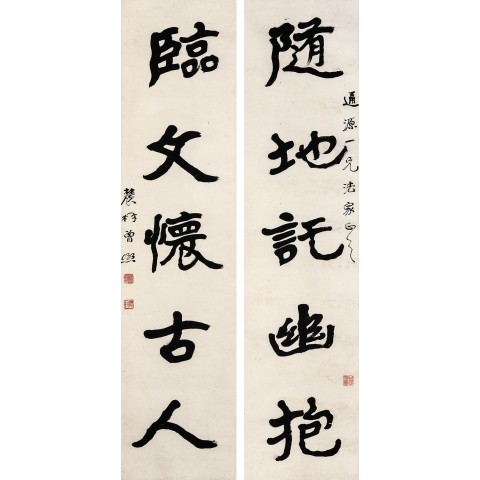 隨地託幽抱
通源一兄法家正之
臨文懷古人
農髯曾熙